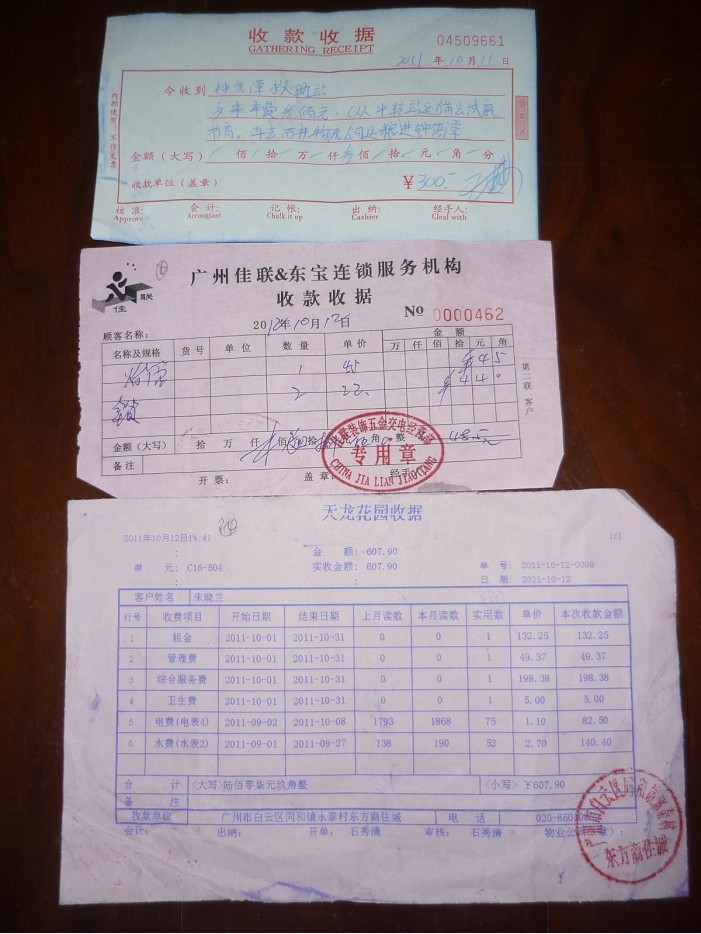 收款收据 04509661
GATHERING RECEIPT
2011 年 10 月 11 日
今收到
内部使用 不作发票
金额(大写) 佰 拾 万 仟 叁 佰 拾 元 角 分
收款单位(盖章) ¥300.-
核准: 会计: 记帐: 出纳: 经手人:
Approve Accountant Chalk it up Cashier Cleal with
佳 联
广州佳联&东宝连锁服务机构
收款收据 No 0000462
顾客名称: 2012年10月12日
名称及规格 货号 单位 数量 单价 金额
万 仟 佰 拾 元 角
1 45 ¥45
锁 2 22. ¥440
第二联 客户
金额(大写) 拾 万 仟 佰 拾 元 角 整
备注
开票: 盖章: 经手
专用章
CHINA JIA LIAN JIAODIANG
天龙花园收据
2011年10月12日14.41 1/1
金 额: -607.90
单 元: C16-504 实收金额: 607.90 单 号: 2011-10-12-0008
日 期: 2011-10-12
客户姓名 朱晓兰
行号 收费项目 开始日期 结束日期 上月读数 本月读数 实用数 单价 本次收款金额
1 租金 2011-10-01 2011-10-31 0 0 1 132.25 132.25
2 管理费 2011-10-01 2011-10-31 0 0 1 49.37 49.37
3 综合服务费 2011-10-01 2011-10-31 0 0 1 198.38 198.38
4 卫生费 2011-10-01 2011-10-31 0 0 1 5.00 5.00
5 电费(电表4) 2011-09-02 2011-10-08 1793 1868 75 1.10 82.50
6 水费(水表2) 2011-09-01 2011-09-27 138 190 52 2.70 140.40
合 计 <大写>陆佰零柒元玖角整 <小写> ¥607.90
备 注
收款单位 广州市白云区同和镇永泰村东方商住城 电 话 020-860
会计: 出纳: 开单: 石秀清 审核: 石秀清 物业公
东方商住城